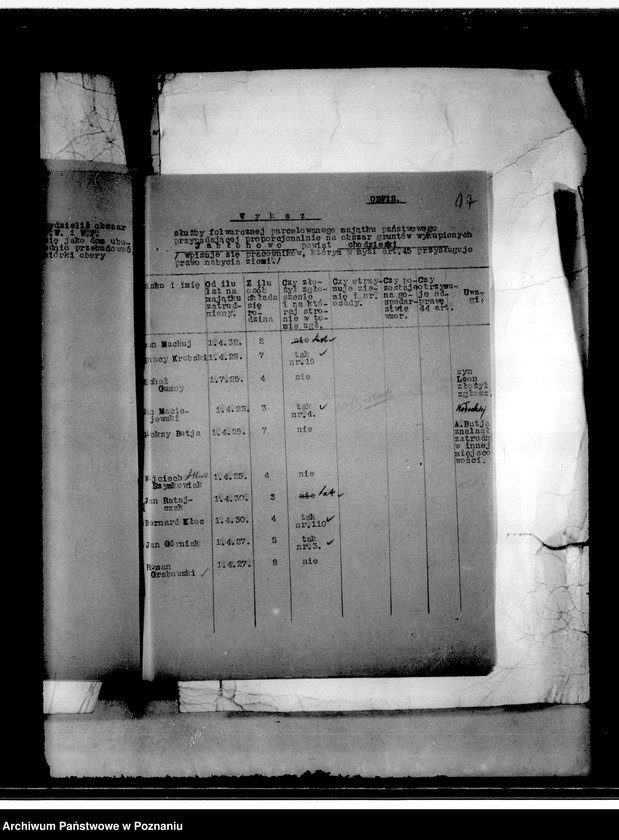 ydzielił obszar
W. i W.F.
się jako dom ubo-
dnio przebudować,
iórki obory
ODPIS.
17
Wykaz
służby folwarcznej parcelowanego majątku państwowego
przypadającej proporcjonalnie na obszar gruntów wykupionych
Jabłonowo powiat chodzieski
/ wpisuje się pracowników, którym w myśl art.45 przysługuje
prawo nabycia ziemi./
isko i imię
Od ilu
lat na
majątku
zatrud-
niony.
Z ilu
osób
składa
się
ro-
dzina
Czy zło-
żył zgło-
szenie
i na któ-
rej stro-
nie w to-
mie zgł.
Czy otrzy-
muje zie-
mię i nr.
osady.
Czy po-
zostaje
na go-
spodar-
stwie
wzor.
Czy
otrzymu-
je od-
prawę
44 art.
Uwa-
gi.
an Machuj 1.4.32. 2 nie tak
gnacy Krobski 1.4.28. 7 tak
nr.19
ichał
Guzny 1.7.25. 4 nie
syn
Leon
złożył
zgłosz.
an Macie-
jewski 1.4.23. 3 tak
nr.4.
leksy Butja 1.4.25. 7 nie
A.Butja
znalazł
zatrudn
w innej
miejsco
wości.
Wojciech
Szymkowiak 1.4.25. 4 nie
Jan Rataj-
czak 1.4.30. 3 nie tak
Bernard Kłos 1.4.30. 4 tak
nr.110
Jan Górniak 1.4.27. 5 tak
nr.3.
Roman
Grabowski 1.4.27. 8 nie
Archiwum Państwowe w Poznaniu